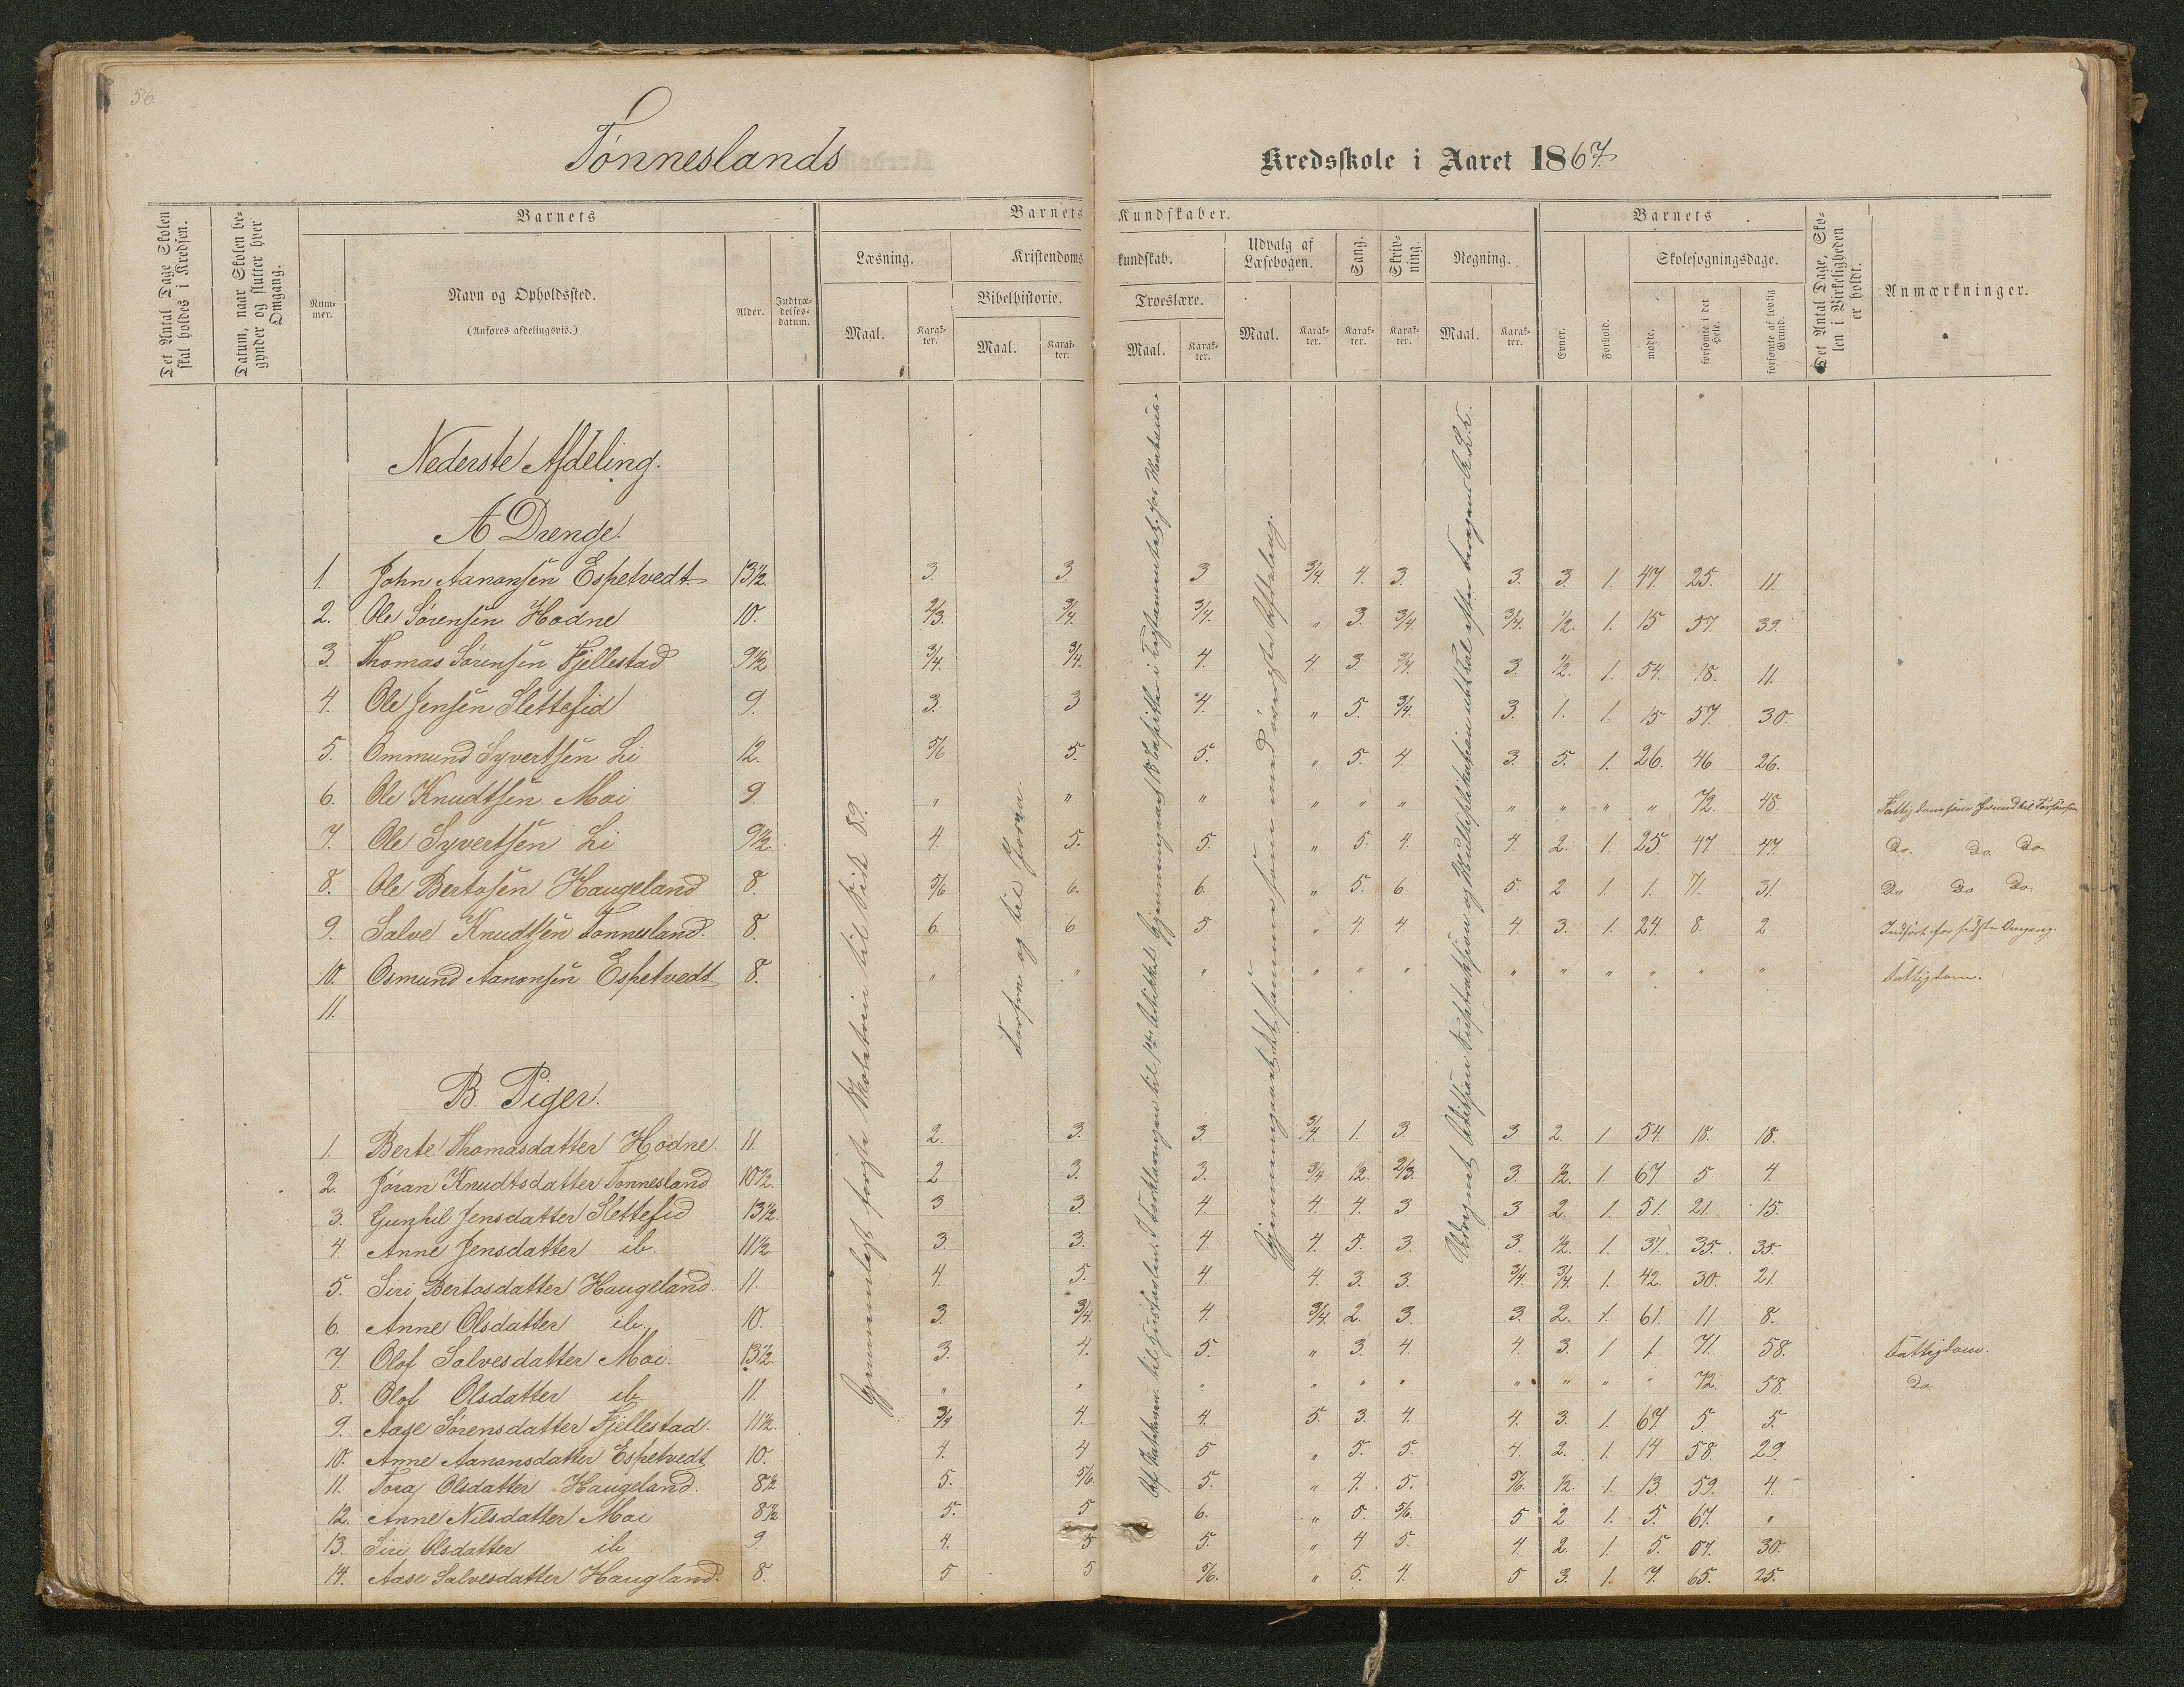 56.
Tønneslands Kredsskole i Aaret 1867.
Det Antal Dage Skolen skal holdes i Kredsen.
Datum, naar Skolen begynder og slutter hver Omgang.
Barnets
Nummer.
Navn og Opholdssted.
(Anføres afdelingsvis.)
Alder.
Indtrædelsesdatum.
Barnets Kundskaber.
Læsning.
Maal.
Karakter.
Kristendomskundskab.
Bibelhistorie.
Maal.
Karakter.
Troeslære.
Maal.
Karakter.
Udvalg af Læsebogen.
Maal.
Karakter.
Sang.
Karakter.
Skrivning.
Karakter.
Regning.
Maal.
Karakter.
Barnets
Evner.
Forhold.
Skolesøgningsdage.
mødte.
forsømte i det Hele.
forsømte af lovlig Grund.
Det Antal Dage, Skolen i Virkeligheden er holdt.
Anmærkninger.
Nederste Afdeling.
A Drenge.
1. John Aanonsen Espetvedt 13½. 3. 3. 3 3/4. 4. 3. 3. 3. 1. 47. 25. 11.
2. Ole Sørensen Hodne 10. 2/3. 3/4. 3/4. " 3. 3/4. 3/4. ½. 1. 15 57. 39.
3. Thomas Sørensen Fjellestad 9½ 3/4. 3/4. 4. 4. 3. 3/4. 3 ½. 1. 54. 18. 11.
4. Ole Jensen Slettefid 9. 3. 3 4. " 5. 3/4. 3. 1. 1. 15 57. 30.
5. Ommund Syvertsen Li 12. 5/6 5. 5. " 5. 4. 3. 5. 1. 26. 46 26.
6. Ole Knudtsen Moi 9. " " " " " " " " " " 72. 48
7. Ole Syvertsen Li 9½ 4. 5. 5. " 5. 4. 4. 2. 1. 25. 47 47. Do. Do. Do.
8. Ole Bertosen Haugeland 8. 5/6 6. 6. " 5. 6 5. 2. 1. 1. 71. 31. Do Do Do.
9. Salve Knudtsen Tønnesland. 8. 6. 6 5. " 4. 4. 4. 3. 1. 24. 8. 2 Indført for sidste Omgang.
10. Osmund Aanonsen Espetvedt 8. " " " " " " " " " " " " Fattigdom.
11.
B. Piger.
1. Berte Thomasdatter Hodne. 11. 2. 3. 3. 3/4. 1. 3. 3 2. 1 54. 18. 18.
2. Jøran Knudtsdatter Tønnesland 10½. 2 3. 3. 3/4 ½. 2/3. 3. ½. 1. 67. 5 4.
3. Gunhil Jensdatter Slettefid 13½. 3 3. 4. 4. 4. 3 3 2. 1. 51. 21. 15.
4. Anne Jensdatter ib. 11½. 3. 3. 4. 4. 5. 3. 3. ½. 1. 37. 35. 35.
5. Siri Bertosdatter Haugeland. 11. 4. 5. 4. 4. 3. 3. 3/4. 3/4. 1. 42. 30. 21.
6. Anne Olsdatter ib. 10. 3. 3/4. 4. 3/4. 2. 3. 3. 2. 1. 61. 11 8.
7. Olof Salvesdatter Moi. 13½. 3. 4. 5. " 3. 4. 4. 3. 1 1. 71. 58. Fattigdom.
8. Olof Olsdatter ib. 11. " " " " " " " " " " 72. 58. Do.
9. Aase Sørensdatter Fjellestad. 11½. 3/4 4. 4. 5. 3. 4. 4. 3. 1. 67. 5. 5.
10. Anne Aanonsdatter Espetvedt 10. 4. 4 5 " 5. 5. 4. 2. 1. 14 58. 29.
11. Tora Olsdatter Haugeland. 8½ 5. 5/6. 5. " 4. 5. 5/6. ½. 1. 13. 59. 4.
12. Anne Nilsdatter Moi 8½ 5. 5 6. " 5. 5/6. 5 2 1. 5. 67. "
13. Siri Olsdatter ib 9. 4. 5 5. " 4 5. 4. 2. 1. 5. 67. 30.
14. Aase Salvesdatter Haugland. 8. 5 5 5/6. " 5. 4. 5 3. 1. 7. 65. 25.
Gjennemlæst første Skoletrin til Side 89.
Forfra og til
Gjennemgaaet det samme som med øverste Afdeling.